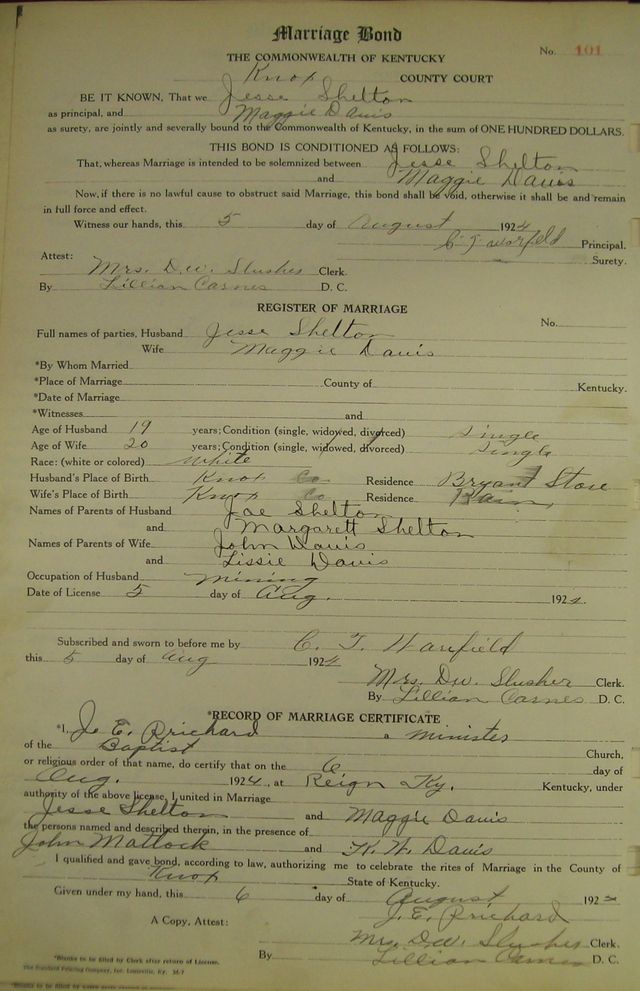 Marriage Bond
No. 101
THE COMMONWEALTH OF KENTUCKY
Knox COUNTY COURT
BE IT KNOWN, That we Jesse Shelton
as principal, and Maggie Davis
as surety, are jointly and severally bound to the Commonwealth of Kentucky, in the sum of ONE HUNDRED DOLLARS.
THIS BOND IS CONDITIONED AS FOLLOWS:
That, whereas Marriage is intended to be solemnized between Jesse Shelton
and Maggie Davis
Now, if there is no lawful cause to obstruct said Marriage, this bond shall be void, otherwise it shall be and remain
in full force and effect.
Witness our hands, this 5 day of August 1924
C. T. Warfield Principal.
Surety.
Attest:
Mrs. D.W. Slusher Clerk.
By Lillian Carnes D. C.
REGISTER OF MARRIAGE
No.
Full names of parties, Husband Jesse Shelton
Wife Maggie Davis
*By Whom Married
*Place of Marriage County of Kentucky.
*Date of Marriage
*Witnesses and
Age of Husband 19 years; Condition (single, widowed, divorced) Single
Age of Wife 20 years; Condition (single, widowed, divorced) Single
Race: (white or colored) White
Husband's Place of Birth Knox Co Residence Bryant Store
Wife's Place of Birth Knox Co Residence
Names of Parents of Husband Joe Shelton
and Margarett Shelton
Names of Parents of Wife John Davis
and Lissie Davis
Occupation of Husband Mining
Date of License 5 day of Aug. 1924.
Subscribed and sworn to before me by C. T. Warfield
this 5 day of Aug 1924
Mrs. D.W. Slusher Clerk.
By Lillian Carnes D. C.
*RECORD OF MARRIAGE CERTIFICATE
*I, J. E. Prichard a Minister
of the Baptist Church,
or religious order of that name, do certify that on the 6 day of
Aug. 1924, at Reign Ky. Kentucky, under
authority of the above license, I united in Marriage
Jesse Shelton and Maggie Davis
the persons named and described therein, in the presence of
John Matlock and K. W. Davis
I qualified and gave bond, according to law, authorizing me to celebrate the rites of Marriage in the County of
Knox State of Kentucky.
Given under my hand, this 6 day of August 192
J. E. Prichard
A Copy, Attest:
Mrs. D.W. Slusher Clerk.
By Lillian Carnes D. C.
*Blanks to be filled by Clerk after return of License.
The Standard Printing Company, Inc. Louisville, Ky.